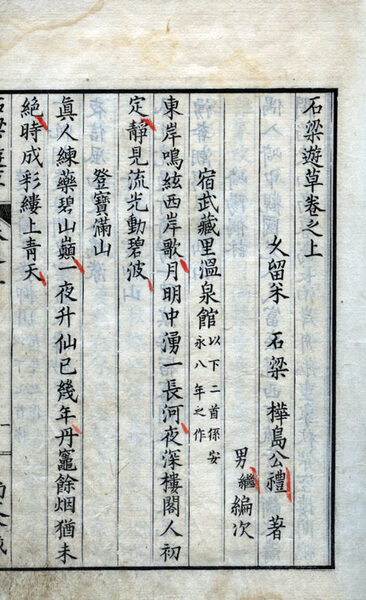 石梁遊草卷之上
久留米 石梁 樺島公禮 著
男繼編次
宿武藏里溫泉館 以下二首係安永八年之作
東岸鳴絃西岸歌月明中湧一長河夜深樓閣人初
定靜見流光動碧波
登寶滿山
眞人練藥碧山巓一夜升仙已幾年丹竈餘烟猶未
絶時成彩縷上靑天